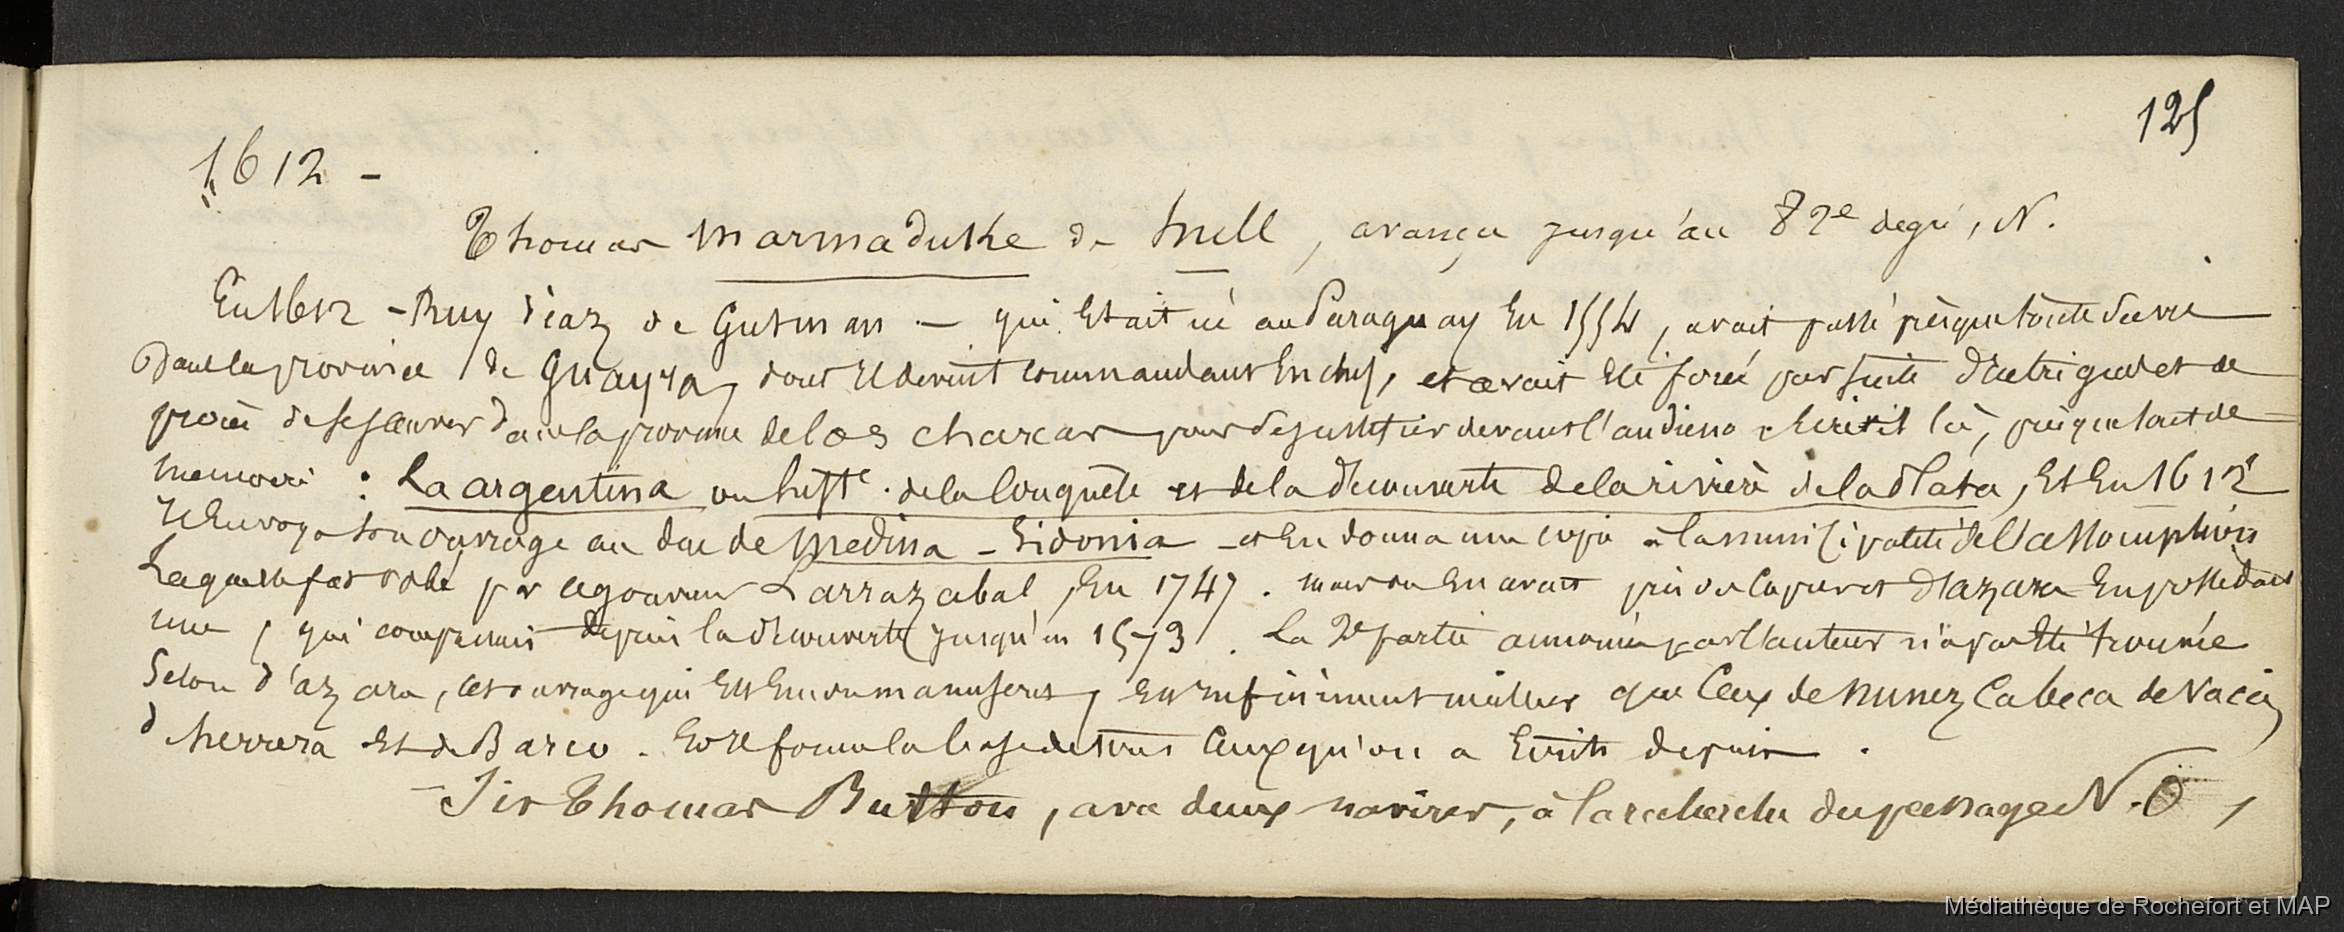 125
1612 -
Thomas Marmaduke de hull, avança jusqu'au 82e degré, N.
En 1612 - Ruy Diaz de Gusman - qui Etait né au Paraguay En 1554, avait passé presque toute sa vie
Dans la province de Guayra, dont il devint commandant En chef, et avait Eté forcé par suite d'intrigues et de
procès de se sauver dans la province de los charcas pour se justifier devant l'audience. il Ecrivit là, presque tout de
memoire : La argentina ou histre. de la Conquête et de la découverte de la rivière de la Plata, Et En 1612
Il Envoya son ouvrage au duc de Medina - Sidonia - et En donna une copie à la municipalité de l'assomption
Laquelle fut volée par le gouverneur Larrazabal, En 1747. mais on En avait pris des copies et d'azara En possedait
une, qui comprenait depuis la découverte jusqu'en 1573. La 2e partie annoncée par l'auteur n'a pas Eté trouvée
Selon d'azara, cet ouvrage qui Est Encore manuscrit, Est infiniment meilleur que Ceux de nunez Cabeca de Vaca,
d'herrera Et de Barco. Et il forme la base de tous Ceux qu'on a Ecrits depuis.
- Sir Thomas Button, avec deux navires, à la recherche du passage N.O,
Médiathèque de Rochefort et MAP